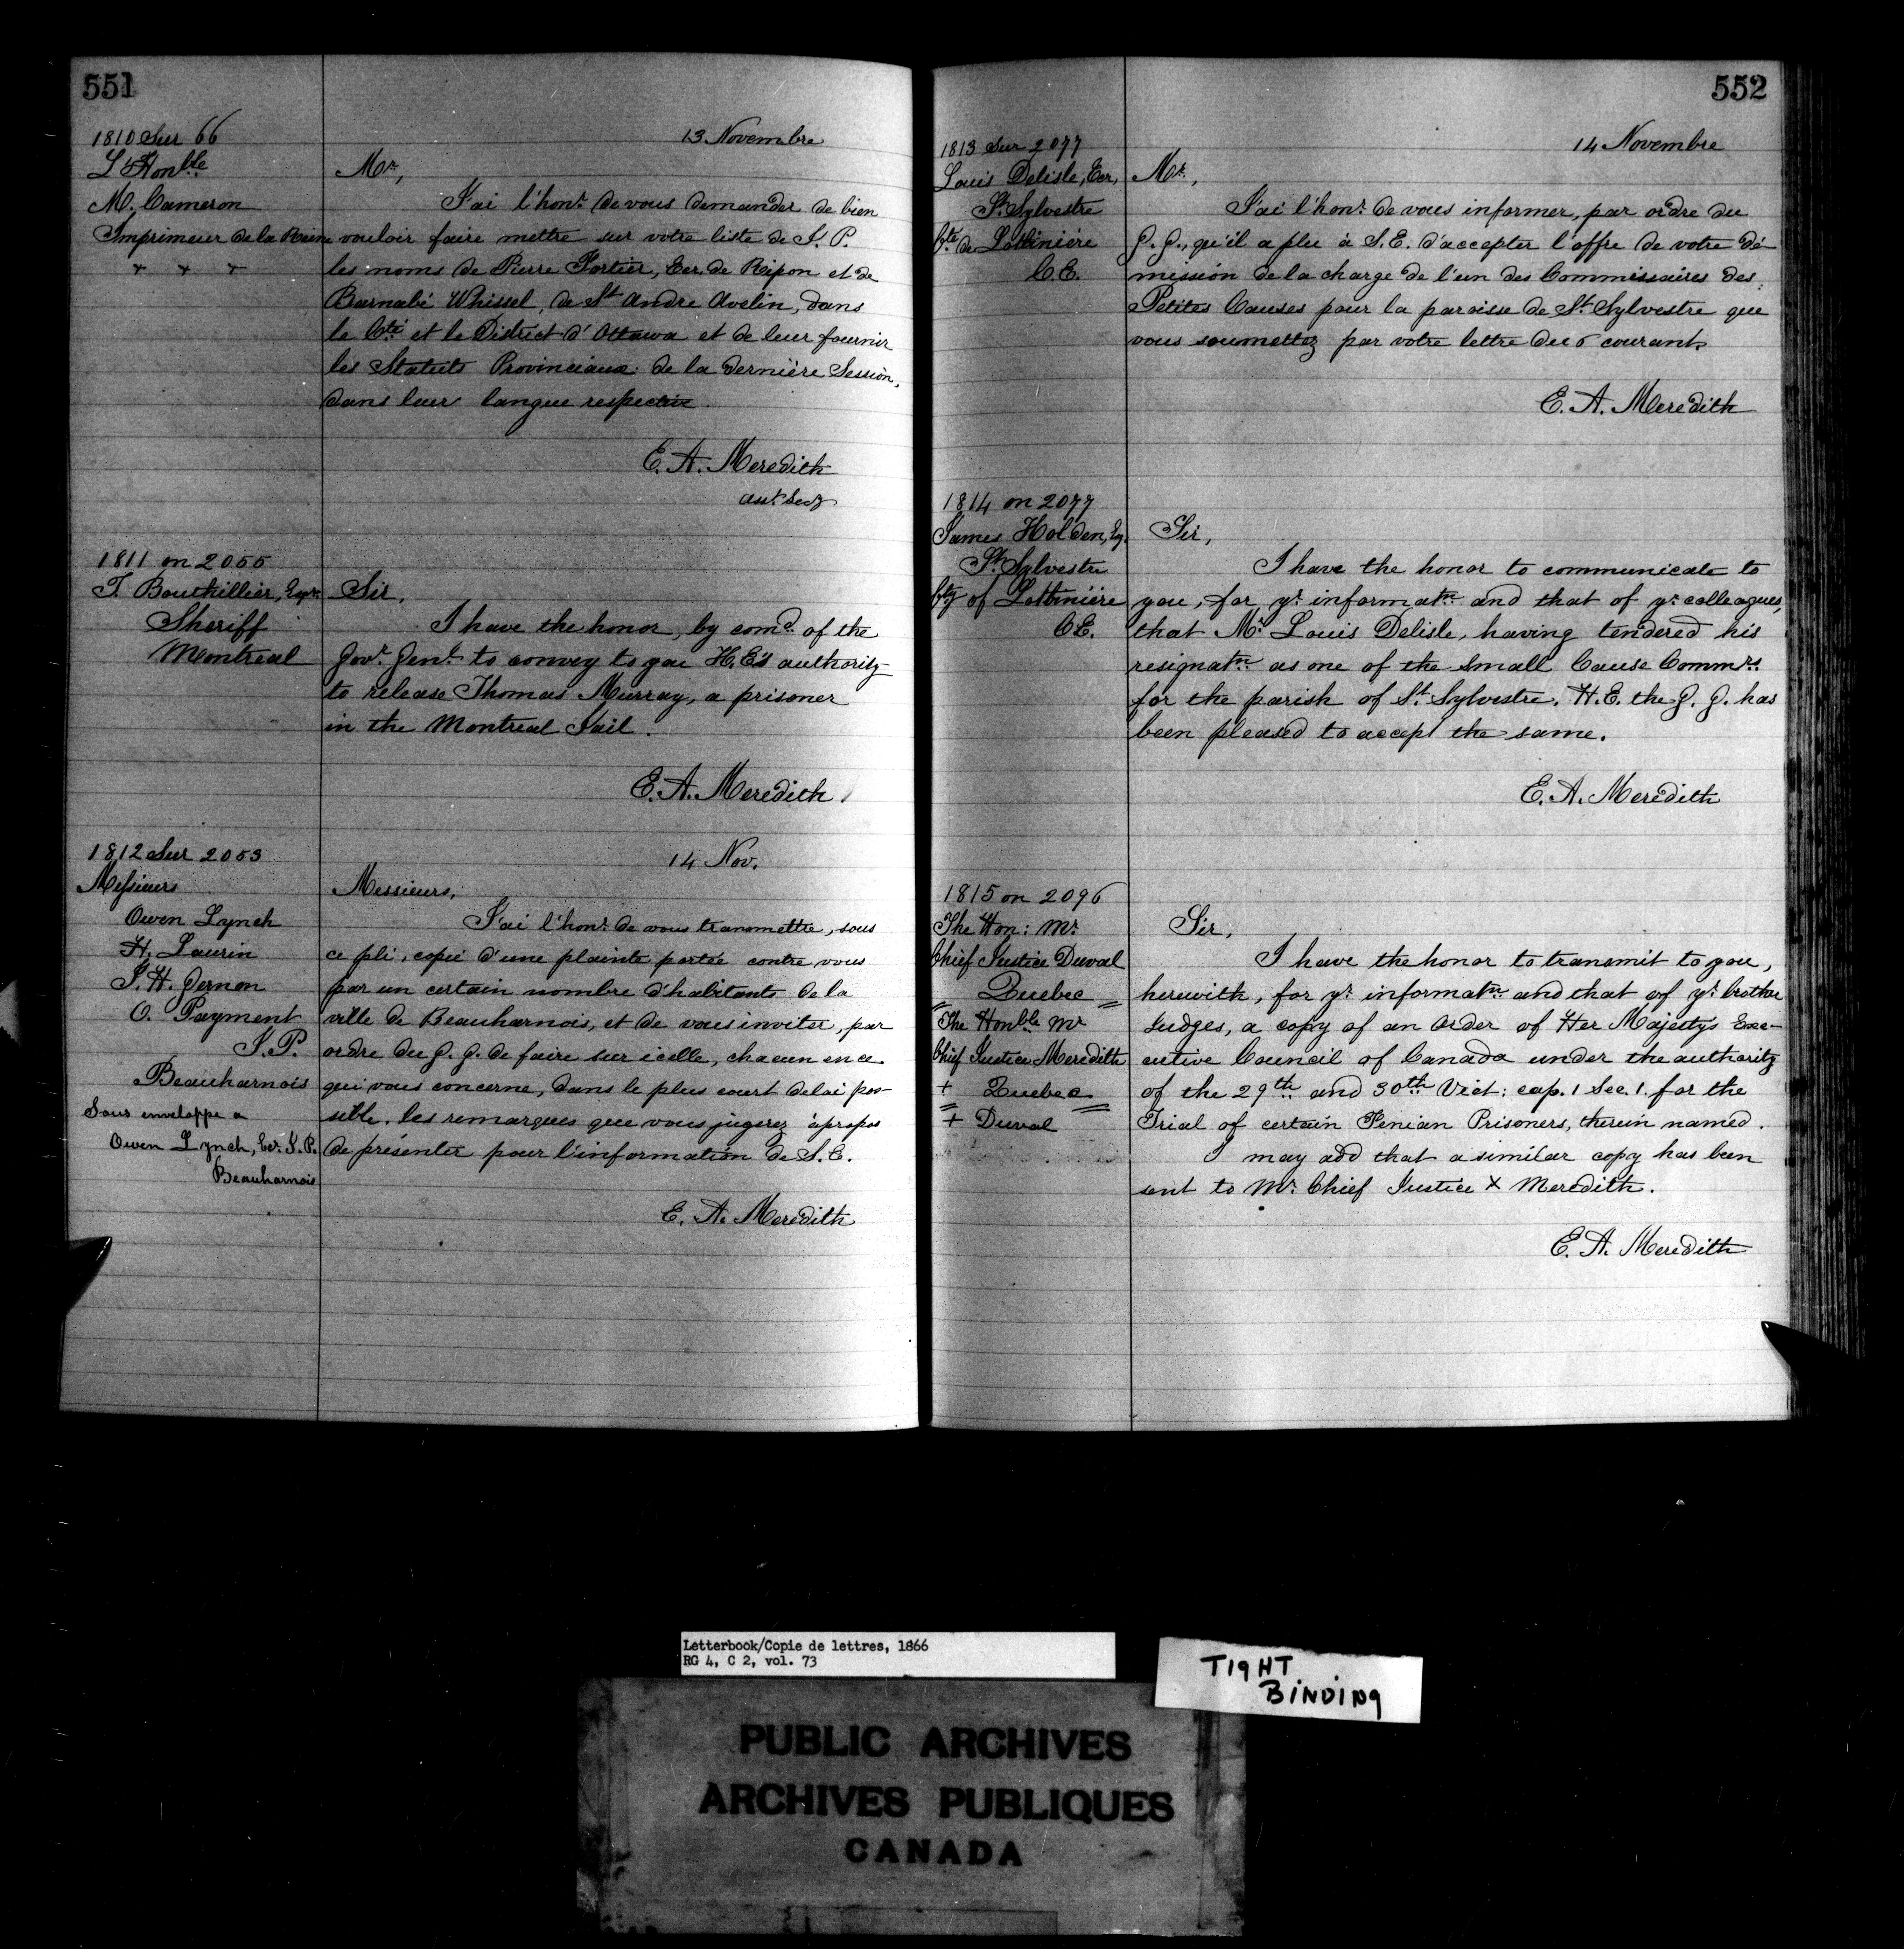 551
1810 Sur 66
L'Honble
M. Cameron
Imprimeur de la Reine
+ + +
13 Novembre
Mr,
J'ai l'honr. de vous demander de bien
vouloir faire mettre sur votre liste de J. P.
les noms de Pierre Fortier, Ecr. de Ripon et de
Barnabé Whissel, de St Andre Avelin, dans
le Cté et le District d'Ottawa et de leur fournir
les Statuts Provinciaux de la dernière Session,
dans leur langue respective.
E. A. Meredith
Asst. Secy
1811 on 2055
T. Bouthillier, Esqr.
Sheriff
Montreal
Sir,
I have the honor, by comd. of the
Govr. Genl. to convey to you H.E's authority
to release Thomas Murray, a prisoner
in the Montreal Jail.
E. A. Meredith
1812 Sur 2053
Messieurs
Owen Lynch
H. Laurin
J. H. Jernon
O. Payment
J.P.
Beauharnois
Sous enveloppe a
Owen Lynch, Ecr. J.P.
Beauharnois
14 Nov.
Messieurs,
J'ai l'honr. de vous transmettre, sous
ce pli, copie d'une plainte portée contre vous
par un certain nombre d'habitants de la
ville de Beauharnois, et de vous inviter, par
ordre du G. G. de faire sur icelle, chacun en ce
qui vous concerne, dans le plus court delai pos-
sible, les remarques que vous jugerez àpropos
de présenter pour l'information de S. E.
E. A. Meredith
552
1813 Sur 2077
Louis Delisle, Ecr,
St. Sylvestre
Cté. de Lotbinière
C.E.
14 Novembre
Mr.,
J'ai l'honr. de vous informer, par ordre du
G. G., qu'il a plu à S. E. d'accepter l'offre de votre dé-
mission de la charge de l'un des Commissaires des
Petites Causes pour la paroisse de St. Sylvestre que
vous soumettez par votre lettre du 6 courant.
E. A. Meredith
1814 on 2077
James Holden, Esq.
St. Sylvestre
Cty of Lotbinière
C.E.
Sir,
I have the honor to communicate to
you, for yr. informatn. and that of yr. colleagues,
that Mr. Louis Delisle, having tendered his
resignatn. as one of the Small Cause Commrs.
for the parish of St. Sylvestre, H.E. the G. G. has
been pleased to accept the same.
E. A. Meredith
1815 on 2096
The Hon: Mr.
Chief Justice Duval
Quebec
The Honble Mr
Chief Justice Meredith
+ Quebec
+ Duval
Sir,
I have the honor to transmit to you,
herewith, for yr. informatn. and that of yr. brother
Judges, a copy of an Order of Her Majesty's Exe-
cutive Council of Canada under the authority
of the 29th and 30th Vict: cap. 1 Sec. 1. for the
Trial of certain Fenian Prisoners, therein named.
I may add that a similar copy has been
sent to Mr. Chief Justice x Meredith.
E. A. Meredith
Letterbook/Copie de lettres, 1866
RG 4, C 2, vol. 73
TIGHT
BINDING
PUBLIC ARCHIVES
ARCHIVES PUBLIQUES
CANADA